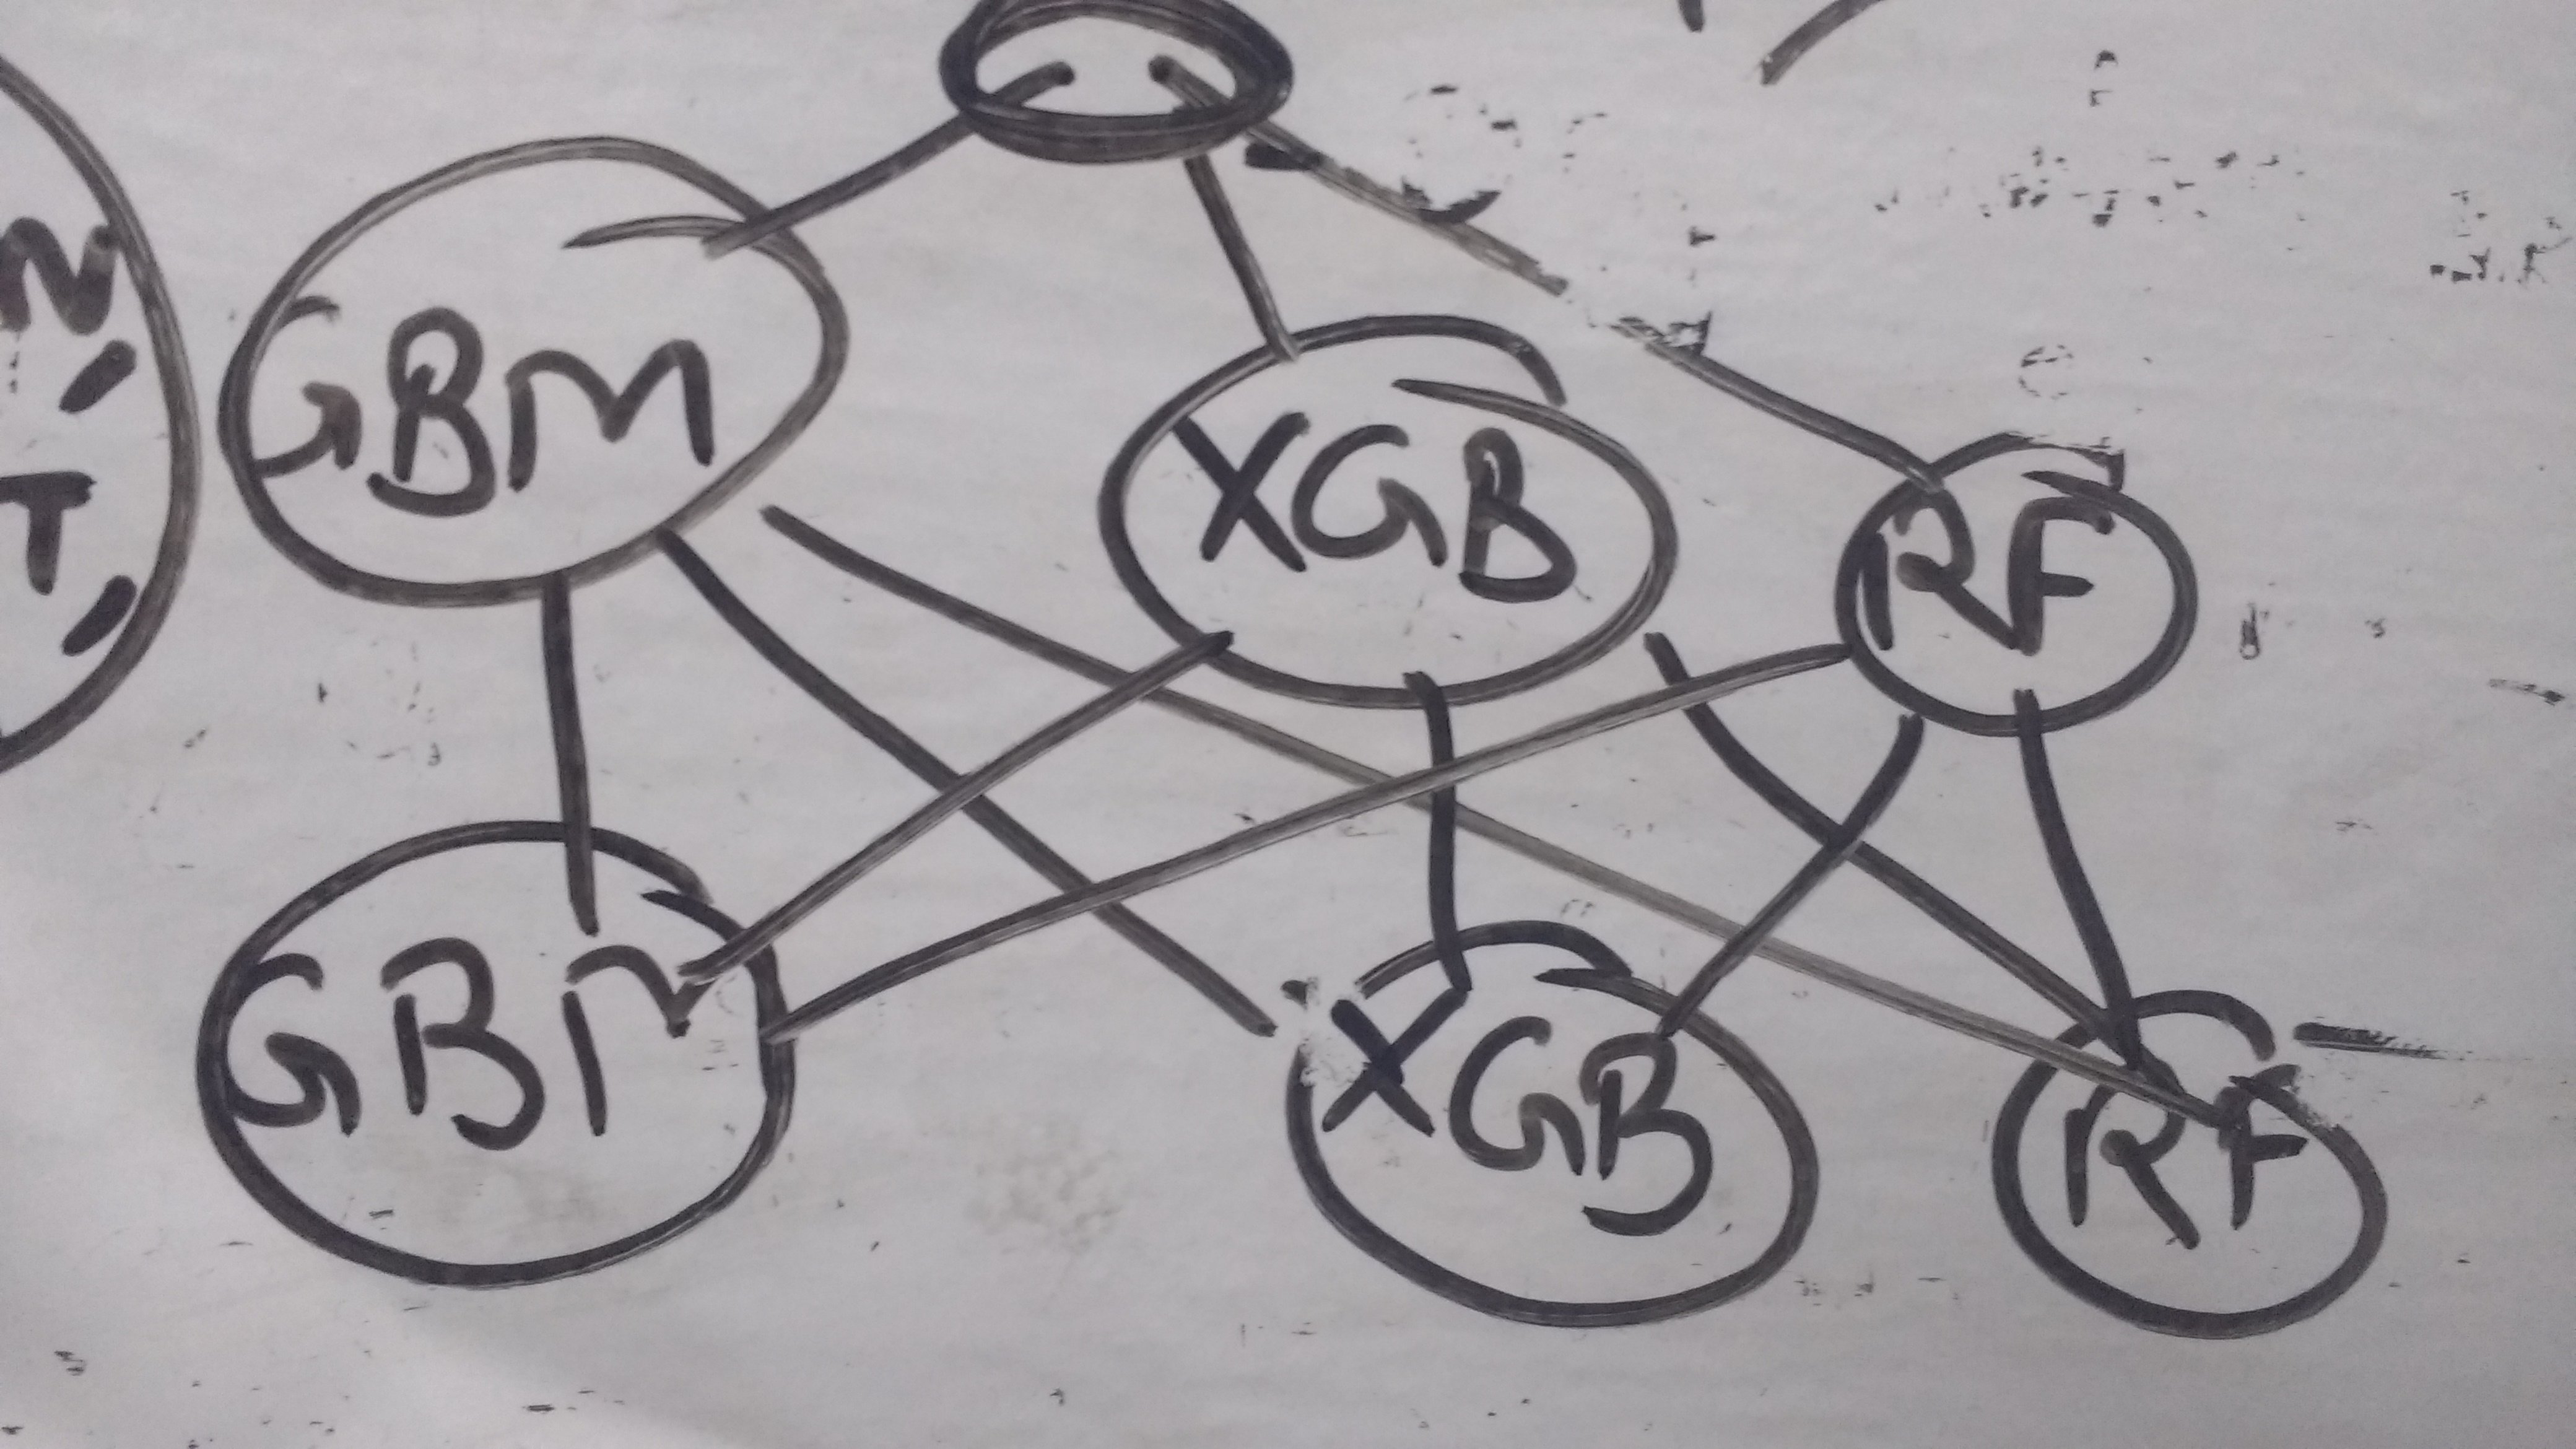 N
T
GBM
XGB
RF
GBM
XGB
RF